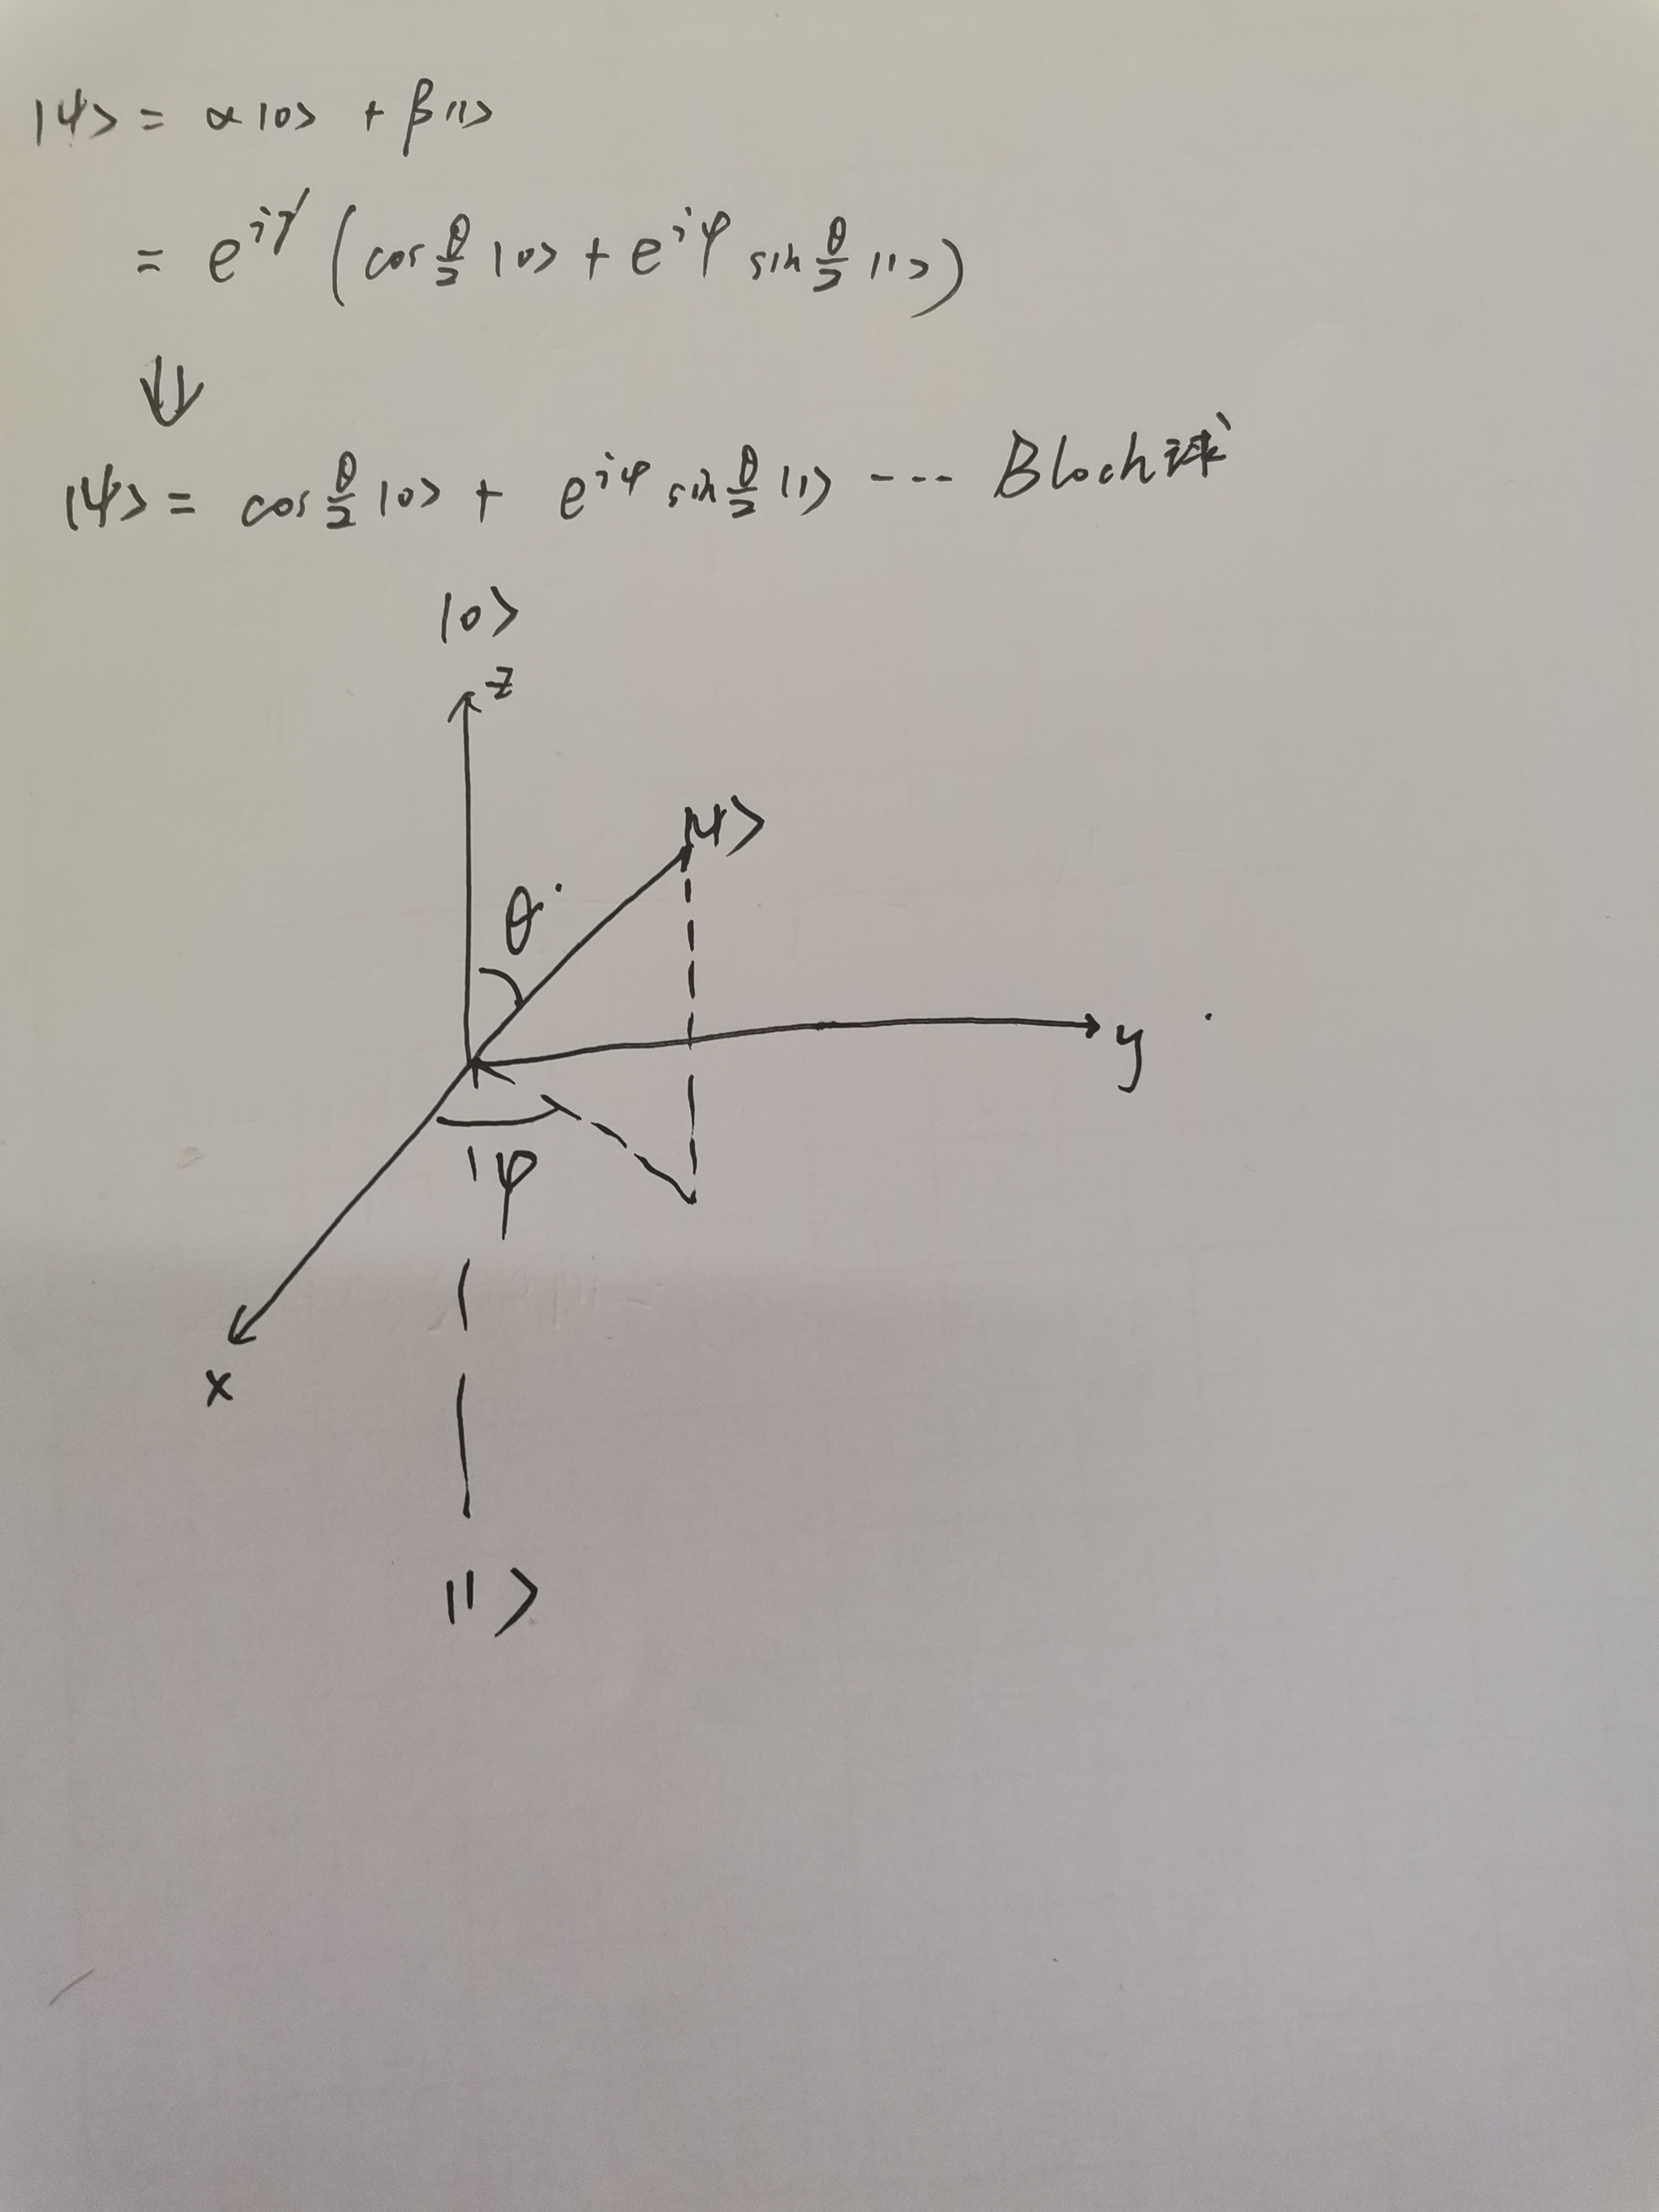 |ψ> = α|0> + β|1>
= e^{iγ} (cos θ/2 |0> + e^{iφ} sin θ/2 |1>)
⇓
|ψ> = cos θ/2 |0> + e^{iφ} sin θ/2 |1> --- Bloch球
|0>
z
|ψ>
θ
y
φ
x
|1>